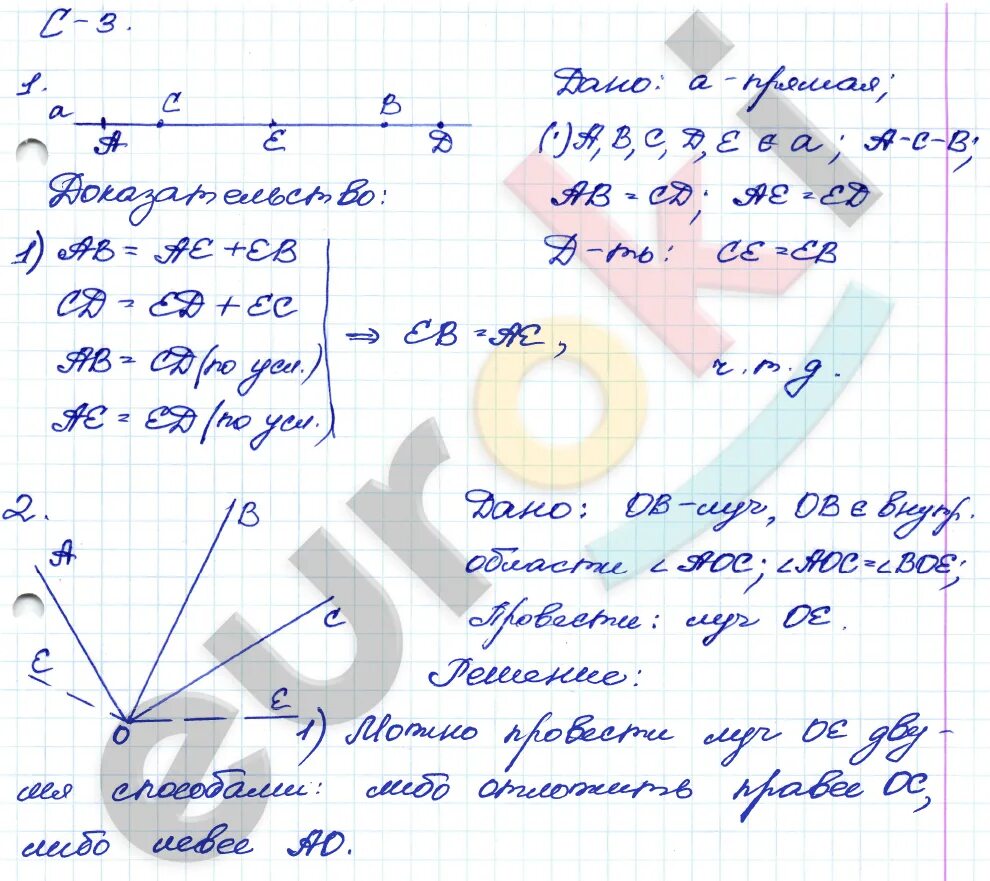 С-3.
1.
a C B
A E D
Дано: a - прямая;
(·) A, B, C, D, E ∈ a; A-C-B;
AB = CD; AE = ED
Д-ть: CE = EB
Доказательство:
1) AB = AE + EB
CD = ED + EC
AB = CD (по усл.)
AE = ED (по усл.)
⇒ EB = AE,
ч.т.д.
2.
B
A
C
E
E
O
Дано: OB - луч, OB ∈ внутр.
области ∠AOC; ∠AOC = ∠BOE;
Провести: луч OE.
Решение:
1) Можно провести луч OE дву-
мя способами: либо отложить правее OC,
либо левее AO.
euroki